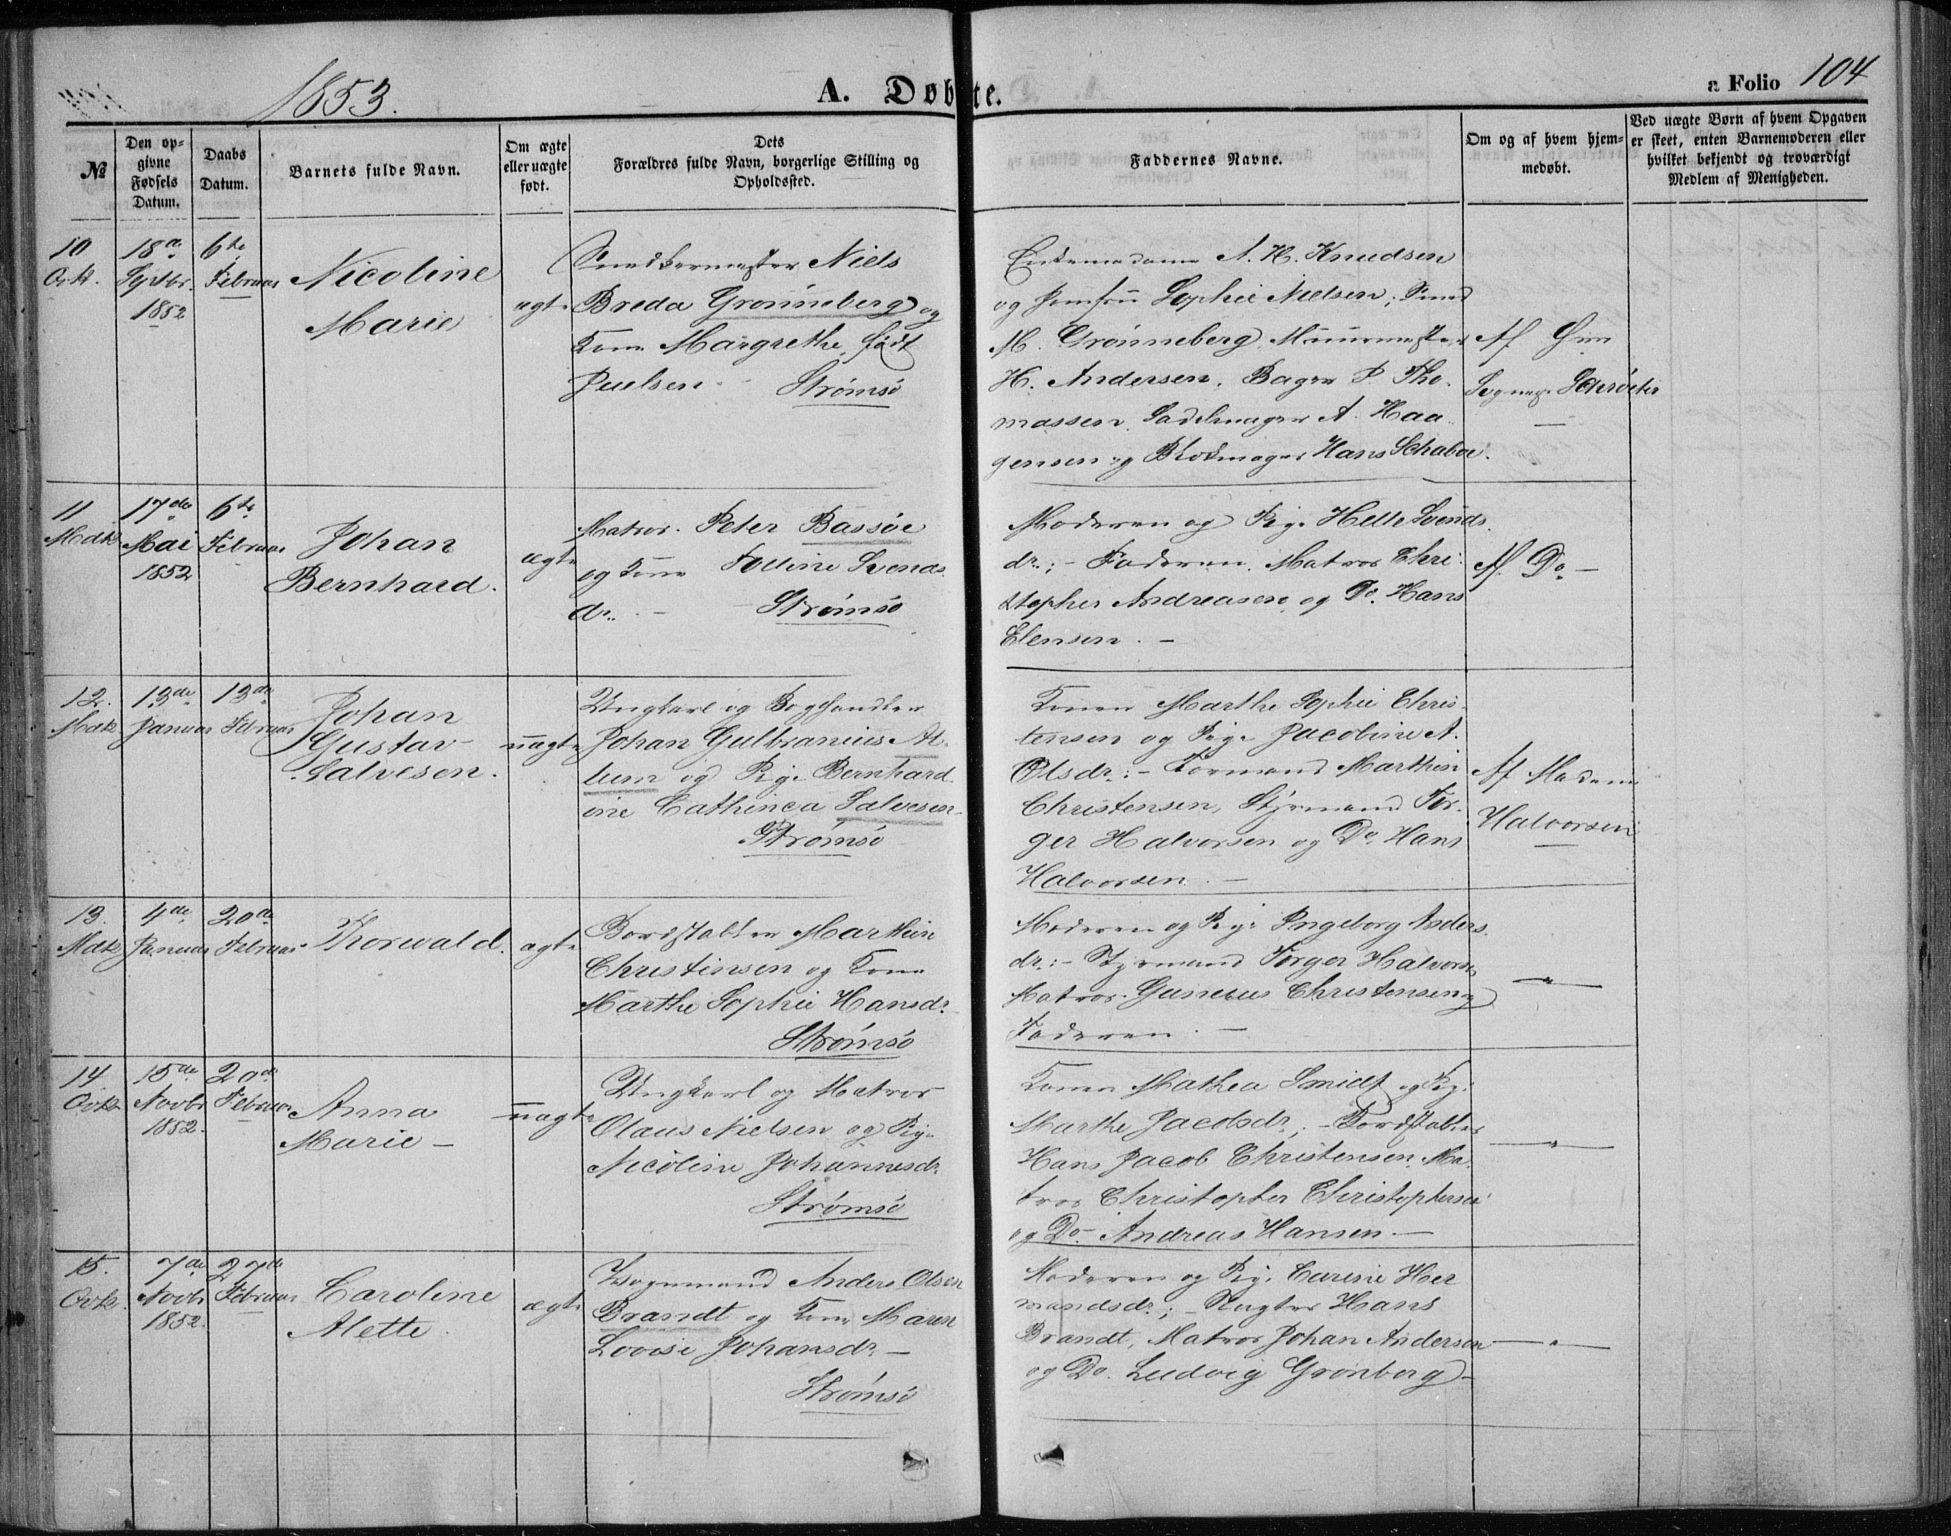 1853.
A. Døbte.
a Folio 104
№
Den opgivne Fødsels Datum.
Daabs Datum.
Barnets fulde Navn.
Om ægte eller uægte født.
Dets Forældres fulde Navn, borgerlige Stilling og Opholdssted.
Faddernes Navne.
Om og af hvem hjemmedøbt.
Ved uægte Børn af hvem Opgaven er skeet, enten Barnemoderen eller hvilket bekjendt og troværdigt Medlem af Menigheden.
10
18de
6te
Septbr
Februar
1852
Nicoline
Marie
ægte
Snedkermester Niels
Breda Grønneberg og
Kone Margrethe født
Juelsen
Strømsø
Enkemadame A. H. Knudsen
og Jomfru Sophie Nielsen; Smed
M. Grønneberg, Muurmester
H. Andersen, Bager P. Tho-
massen, Sadelmager A. Haa-
gensen og Blokmager Hans Schaboe.
Af Hrr
Sognepr. Schrøeter
11
Mdk
17de
Mai
1852
6te
Februar
Johan
Bernhard.
ægte
Matros Peter Bassøe
og Kone Tolline Svends
dr. -
Strømsø
Moderen og Pige Helle Svends
dr.; - Faderen, Matros Chri-
stopher Andreasen og Do. Hans
Elensen. -
Af Do -
12.
Mdk
13de
Januar
13de
Februar
Johan
Gustav
Salvesen.
uægte
Ungkarl og Boghandler
Johan Gulbranius Al-
bum og Pige Bernhard
ine Cathinca Salvesen
Strømsø
Konen Marthe Sophie Chris-
tensen og Pige Jacobine A.
Olsdr.: - Formand Marthin
Christensen, Styrmand Tor-
ger Halvorsen og Do. Hans
Halvorsen. -
Af Madame
Halvorsen
13.
Mdk
4de
Januar
20de
Februar
Thorwald.
ægte
Bordstabler Marthin
Christensen og Kone
Marthe Sophie Hansdr.
Strømsø
Moderen og Pige Ingeborg Anders
dr.: - Styrmand Torger Halvorsen
Matros Gunerius Christensen og
Faderen. -
14
15de
Novbr
1852.
20de
Februar
Anna
Marie -
uægte
Ungkarl og Matros
Olaus Nielsen og Pige
Nicoline Johannesdr.
Strømsø
Konen Mathea Smidt og Pige
Marthe Jacobsdr.; - Bordstabler
Hans Jacob Christensen, Ma-
tros Christopher Christophersen
og Do. Andreas Hansen. -
15.
7de
Novbr
1852.
27de
Februar
Caroline
Alette.
ægte
Vognmand Anders Olsen
Brandt og Kone Maren
Lovise Johansdr. -
Strømsø
Moderen og Pige Carine Her
mandsdr.; - Slagter Hans
Brandt, Matros Johan Andersen
og Do. Ludvig Grønberg -